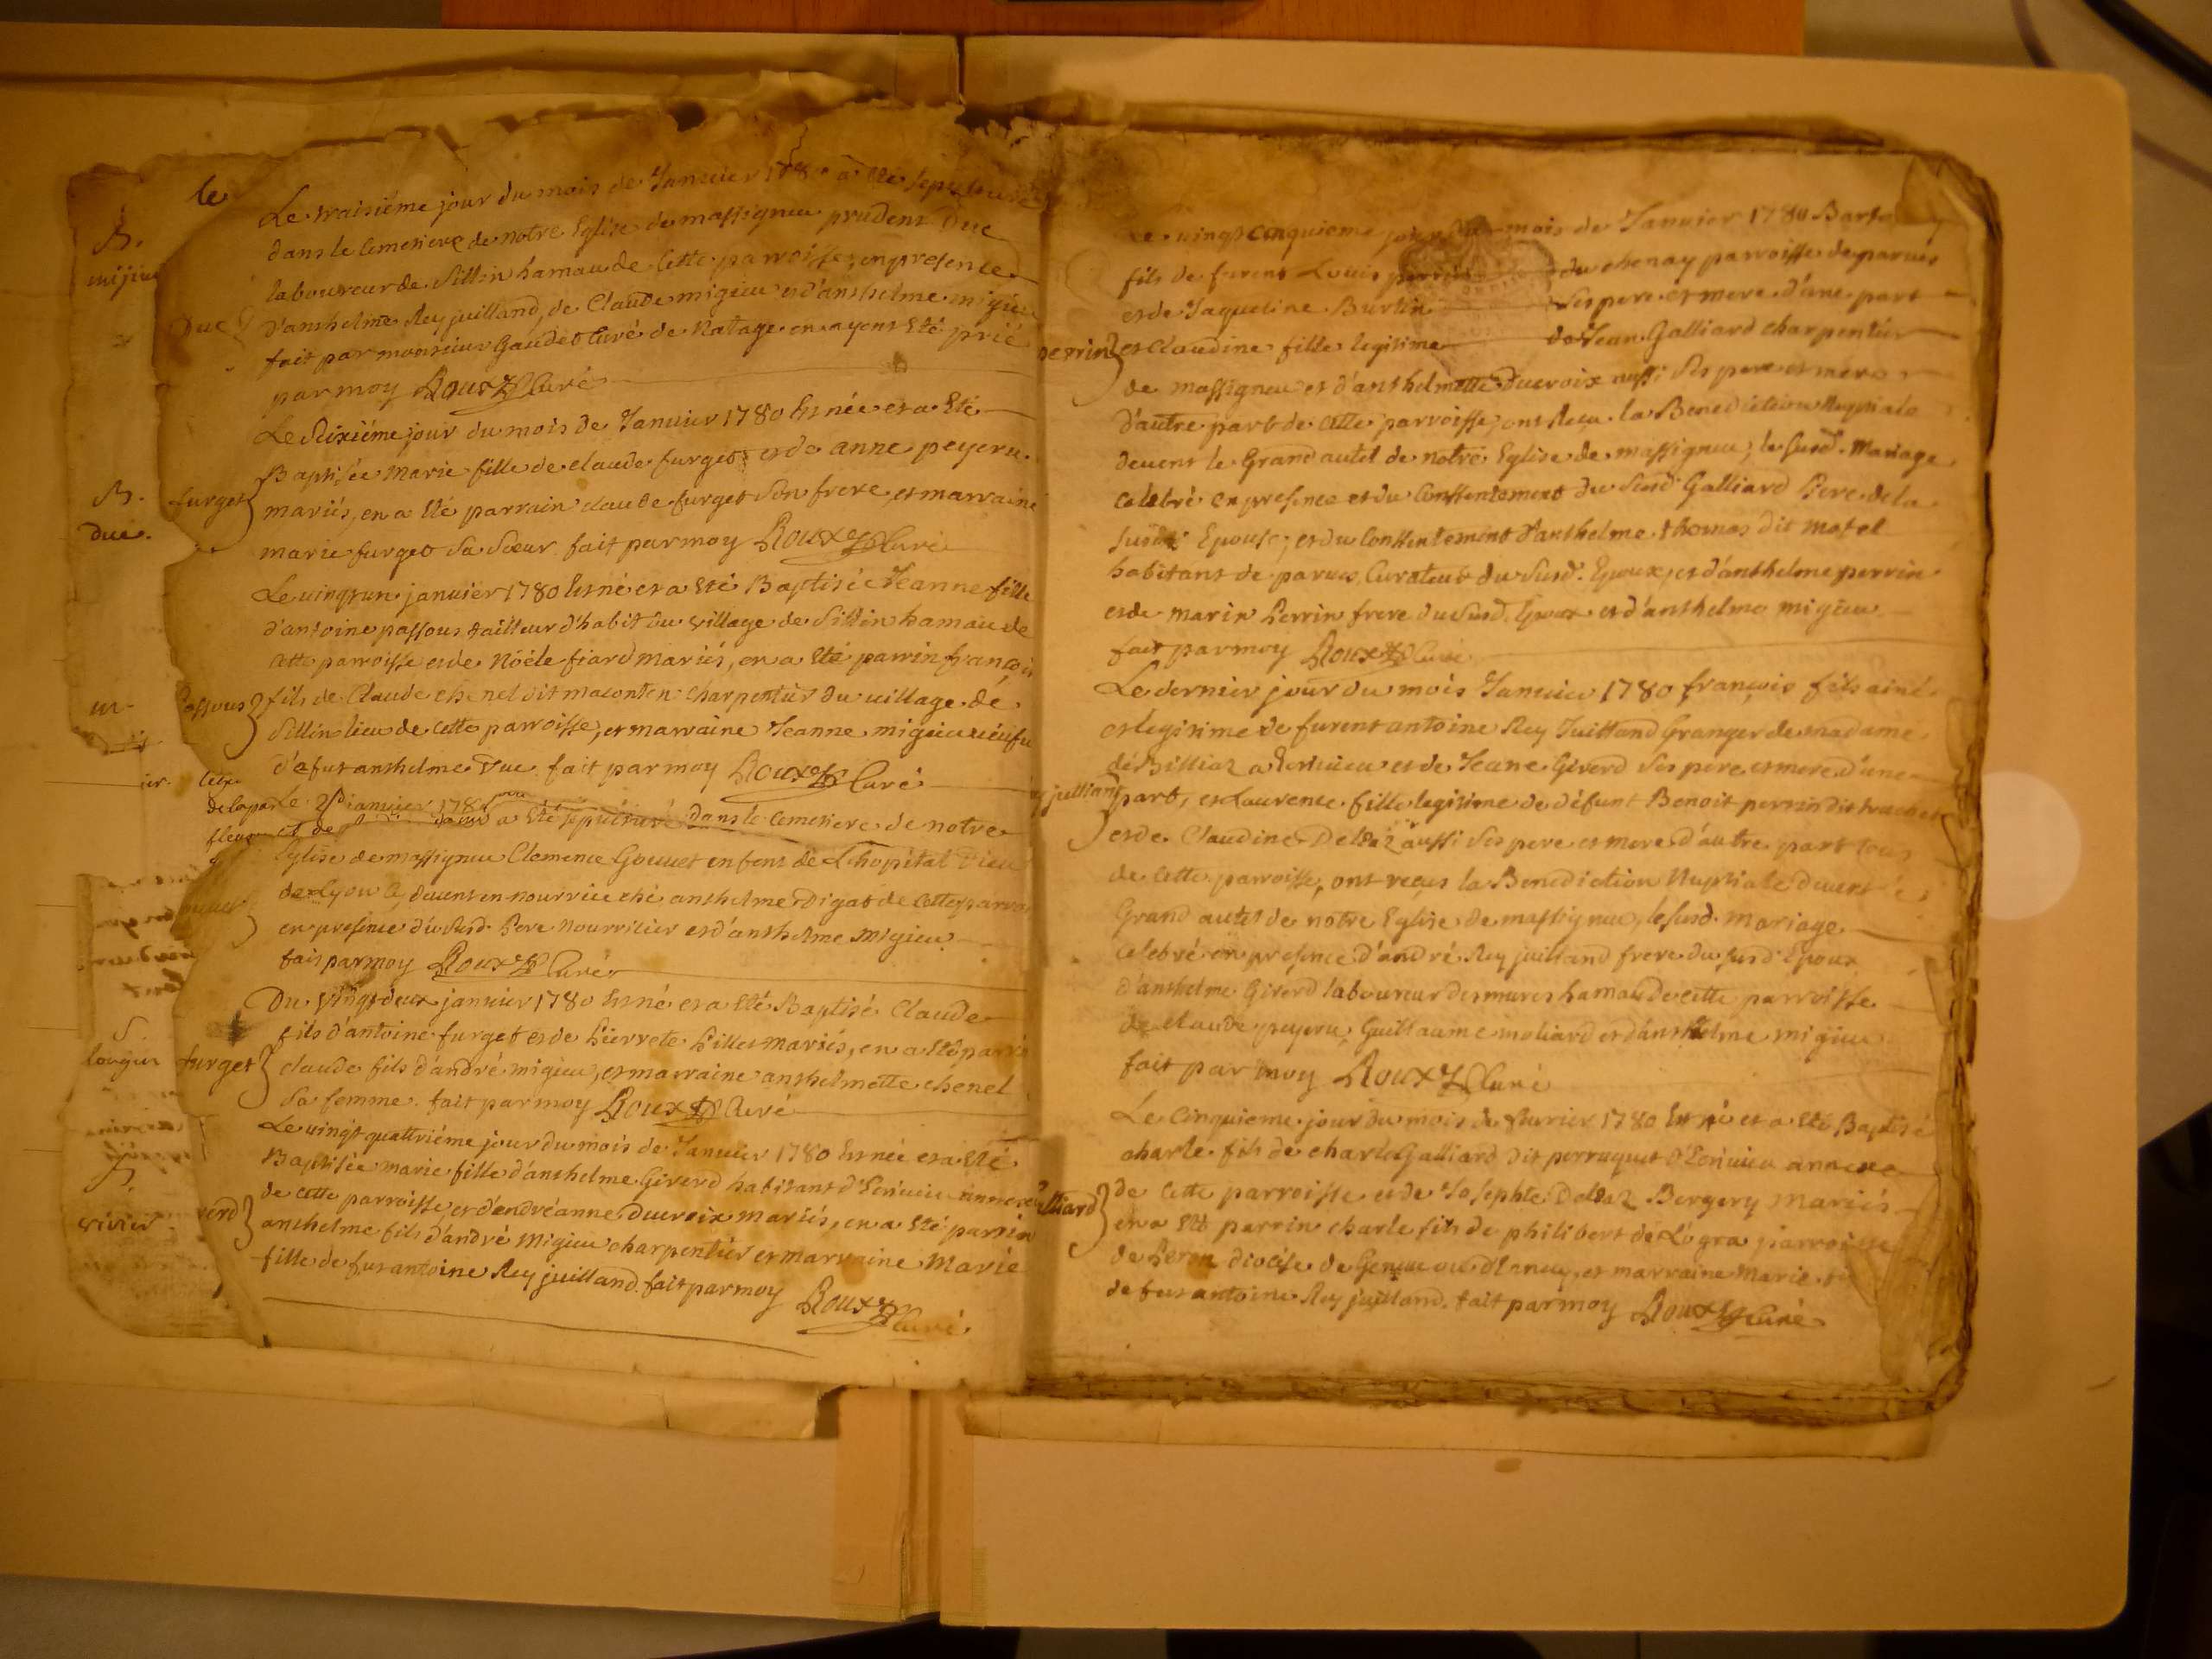 le
Le troisiéme jour du mois de Januier 1780 a Eté sepulturé
dans le Cemetiere de notre Eglise de massigneu prudent Duc
laboureur de Sillin hamau de Cette parroisse, en presence
Duc
d'anthelme Rey juilland, de Claude migieu et d'anthelme migieu
fait par monsieur Gaudet Curé de Natage en ayent Eté prié
par moy Roux Curé
Le Dixiéme jour du mois de Januier 1780 Est née et a Eté
Baptisée marie fille de claude furget et de anne peyeru
furget
mariés, en a Eté parrain claude furget Son frere, et marraine
marie furget Sa Sœur fait par moy Roux Curé
Le uingt un januier 1780 Est né et a Eté Baptisée Jeanne fille
d'antoine passous tailleur d'habit du village de Sillin hamau de
Cette parroisse et de Nöéle fiard mariés, en a Eté parrin françois
passous
fils de Claude chenel dit maconten charpentier du uillage de
Sillin lieu de Cette parroisse, et marraine Jeanne migieu
défut anthelme Duc fait par moy Roux Curé
Le januier 1780 a Eté sepulturé dans le Cemetiere de notre
Eglise de massigneu Clemence Gouuet enfent de Lhopital Dieu
de Lyon deuent en nourrice ché anthelme Digat de Cette parroi
en presence du Susd. Pere Nourricier et d'anthelme migieu
fait par moy Roux Curé
Du Vingt deux januier 1780 Est né et a Eté Baptisé Claude
fils d'antoine furget et de Pierrete Pillet mariés, en a Eté parrin
furget
claude fils d'andré migieu, et marraine anthelmette chenel
Sa femme. fait par moy Roux Curé
Le uingt quatriéme jour du mois de Januier 1780 Est née et a Eté
Baptisée marie fille d'anthelme Girerd habitant d'Ecriuieu annexe
de Cette parroisse, et d'andréanne Ducroix mariés, en a Eté parrin
anthelme fils d'andré migieu charpentier et marraine Marie
fille de fut antoine Rey juilland. fait par moy
Roux Curé
B.
mijieu
B.
duc.
S.
B.
Le uingt cinquieme jour du mois de Januier 1780
fils de furent Louis perrin du chenay parroisse de parues
et de Jaqueline Burtin Ses pere et mere d'une part
perrin
et Claudine fille legitime de Jean Galliard charpentier
de massigneu et d'anthelmette Ducroix aussi Ses pere et mere
d'autre part de Cette parroisse, ont Recu la Benediction Nuptiale
deuent le Grand autel de notre Eglise de massigneu, le Susd. Mariage
celebré en presence et du Consentement du Susd Galliard Pere de la
Susd. Epouse, et du Consentement d'anthelme thomas dit matel
habitant de parues, Curateur du Susd. Epoux, et d'anthelme perrin
et de marin Perrin frere du Susd. Epoux et d'anthelme migieu
fait par moy Roux Curé
Le dernier jour du mois Januier 1780 françois fils ainé
et legitime de furent antoine Rey Juilland Granger de madame
de Billiaz a Ecriuieu et de Jeane Girerd Ses pere et mere d'une
juilland
part, et Laurence fille legitime de défunt Benoit perrin dit
et de Claudine Delaz aussi Ses pere et mere d'autre part tous
de Cette parroisse, ont reçus la Benediction Nuptiale deuent le
Grand autel de notre Eglise de massigneu, le susd. mariage
celebré en presence d'andré Rey juilland frere du susd Epoux
d'anthelme Girerd laboureur des mures hamau de cette parroisse
de claude peyeru, Guillaume moliard et d'anthelme migieu
fait par moy Roux Curé
Le Cinquieme jour du mois de feurier 1780 Est né et a Eté Baptisé
charle fils de charle Galliard dit perruquet d'Ecriuieu annexe
galliard
de Cette parroisse et de Josephte Delaz Bergery Mariés
en a Eté parrin charle fils de philibert de Logra parroisse
de Peron diocése de Geneue ou d'Anneçy, et marraine Marie
de fut antoine Rey juilland. fait par moy Roux Curé